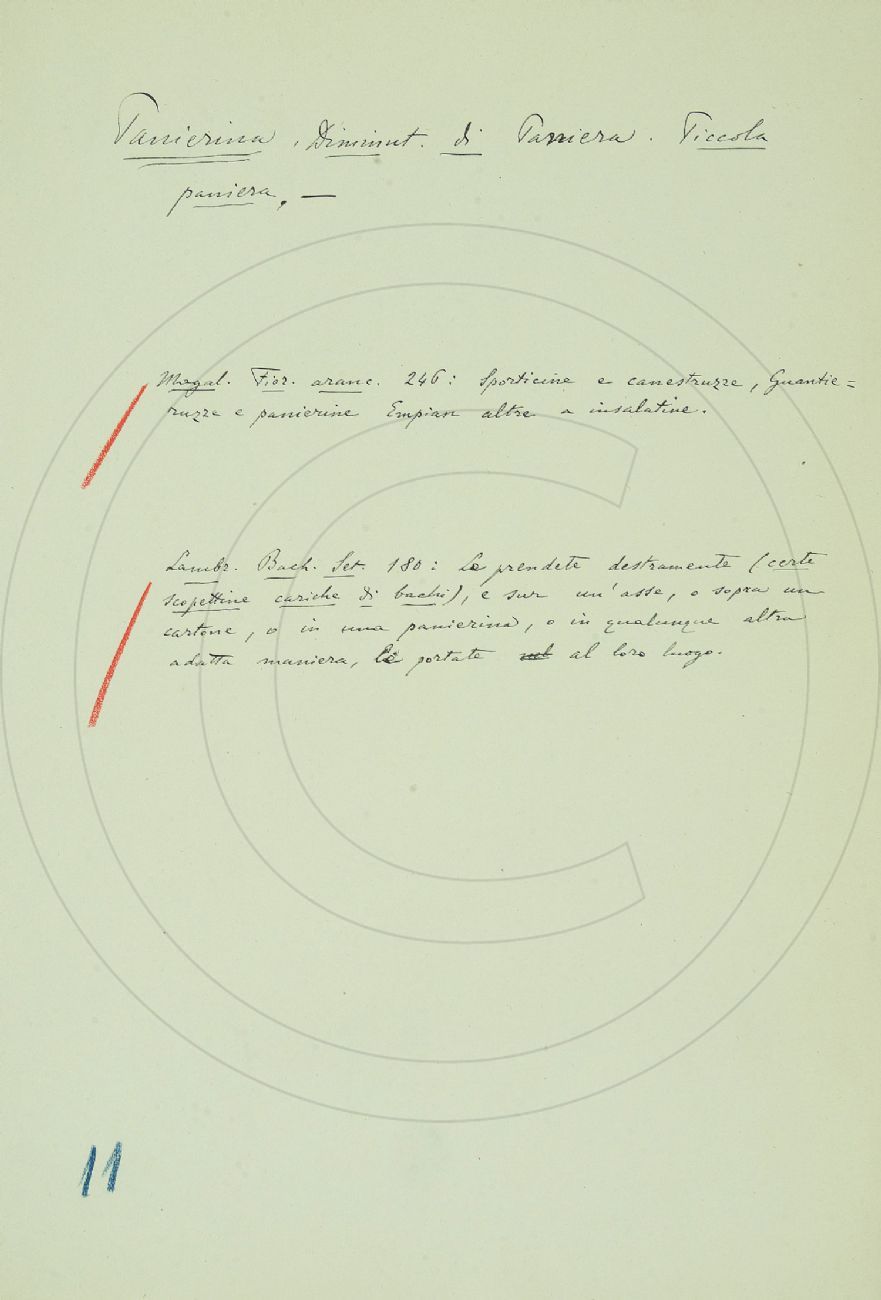 Panierina. Diminut. di Paniera. Piccola
paniera. —
Magal. Fior. aranc. 246: Sporticine e canestruzze, Guantie=
ruzze e panierine Empian altre a insalatine.
Lambr. Bach. Set. 180: Le prendete destramente (certe
scopettine cariche di bachi), e sur un' asse, o sopra un
cartone, o in una panierina, o in qualunque altra
adatta maniera, le portate al loro luogo.
11